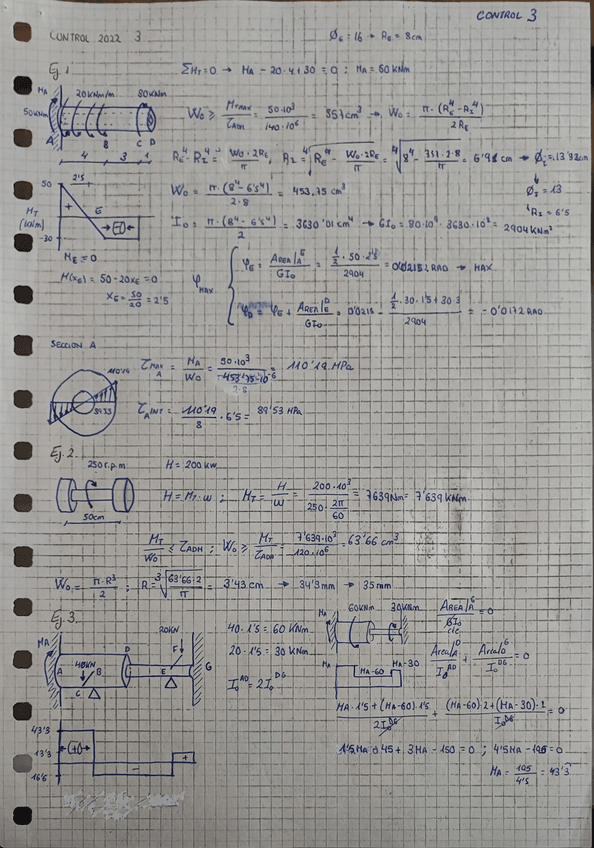 CONTROL 3
CONTROL 2022 3
Ø_E = 16 → R_E = 8cm
Ej 1
ΣM_T = 0 → M_A - 20·4 + 30 = 0 ; M_A = 50 KNm
M_A
20KNm/m
30KNm
50KNm
A B C D
4 3 1
W_0 ≥ M_Tmax / τ_ADM = 50·10³ / 140·10⁶ = 357 cm³ → W_0 = π·(R_E⁴ - R_I⁴) / 2R_E
R_E⁴ - R_I⁴ = W_0·2R_E / π , R_I = ⁴√(R_E⁴ - W_0·2R_E / π) = ⁴√(8⁴ - 357·2·8 / π) = 6'9 cm → Ø_I = 13'92cm
Ø_I = 13
R_I = 6'5
50
2'5
+
E
M_T
(KNm)
-30
W_0 = π·(8⁴ - 6'5⁴) / 2·8 = 453,75 cm³
I_0 = π·(8⁴ - 6'5⁴) / 2 = 3630'01 cm⁴ → GI_0 = 80·10⁹·3630·10⁻⁸ = 2904 KNm²
M_E = 0
M(x_E) = 50 - 20x_E = 0
x_E = 50/20 = 2'5
φ_MAX
φ_E = AREA]_A^E / GI_0 = ½·50·2'5 / 2904 = 0'02152 RAD → MAX
φ_D = φ_E + AREA]_E^D / GI_0 = 0'0215 - (½·30·1'5 + 30·3) / 2904 = -0'0172 RAD
SECCION A
τ_MAX A = M_A / W_0 = 50·10³ / 453'75·10⁻⁶ = 110'19 MPa
τ_A INT = 110'19 / 8 · 6'5 = 89'53 MPa
Ej. 2
250 r.p.m
50cm
H = 200 kW
H = M_T·ω ; M_T = H / ω = 200·10³ / (250·2π/60) = 7639 Nm = 7'639 KNm
M_T / W_0 ≤ τ_ADM ; W_0 ≥ M_T / τ_ADM = 7'639·10³ / 120·10⁶ = 63'66 cm³
W_0 = π·R³ / 2 ; R = ³√(63'66·2 / π) = 3'43 cm → 34'3 mm → 35 mm
Ej 3
M_A
40KN
20KN
A B C D E F G
40·1'5 = 60 KNm
20·1'5 = 30 KNm
I_0^AD = 2I_0^DG
M_A
60KNm
30KNm
M_A-60
M_A-30
AREA]_A^G / GI_0 = 0
Area]_A^D / I_0^AD + Area]_D^G / I_0^DG = 0
M_A·1'5 + (M_A-60)·1'5 / 2I_0^DG + (M_A-60)·2 + (M_A-30)·1 / I_0^DG = 0
1'5M_A - 45 + 3M_A - 150 = 0 ; 4'5M_A - 195 = 0
M_A = 195 / 4'5 = 43'3
43'3
13'3
16'6
-
+